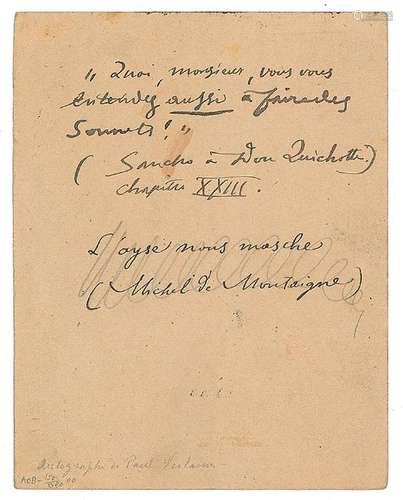 „ Quoi, monsieur, vous vous
entendez aussi à faire des
Sonnets ! „
( Sancho à Don Quichotte.)
chapitre XXIII.
L'ayse nous masche
(Michel de Montaigne)
Autographe de Paul Verlaine